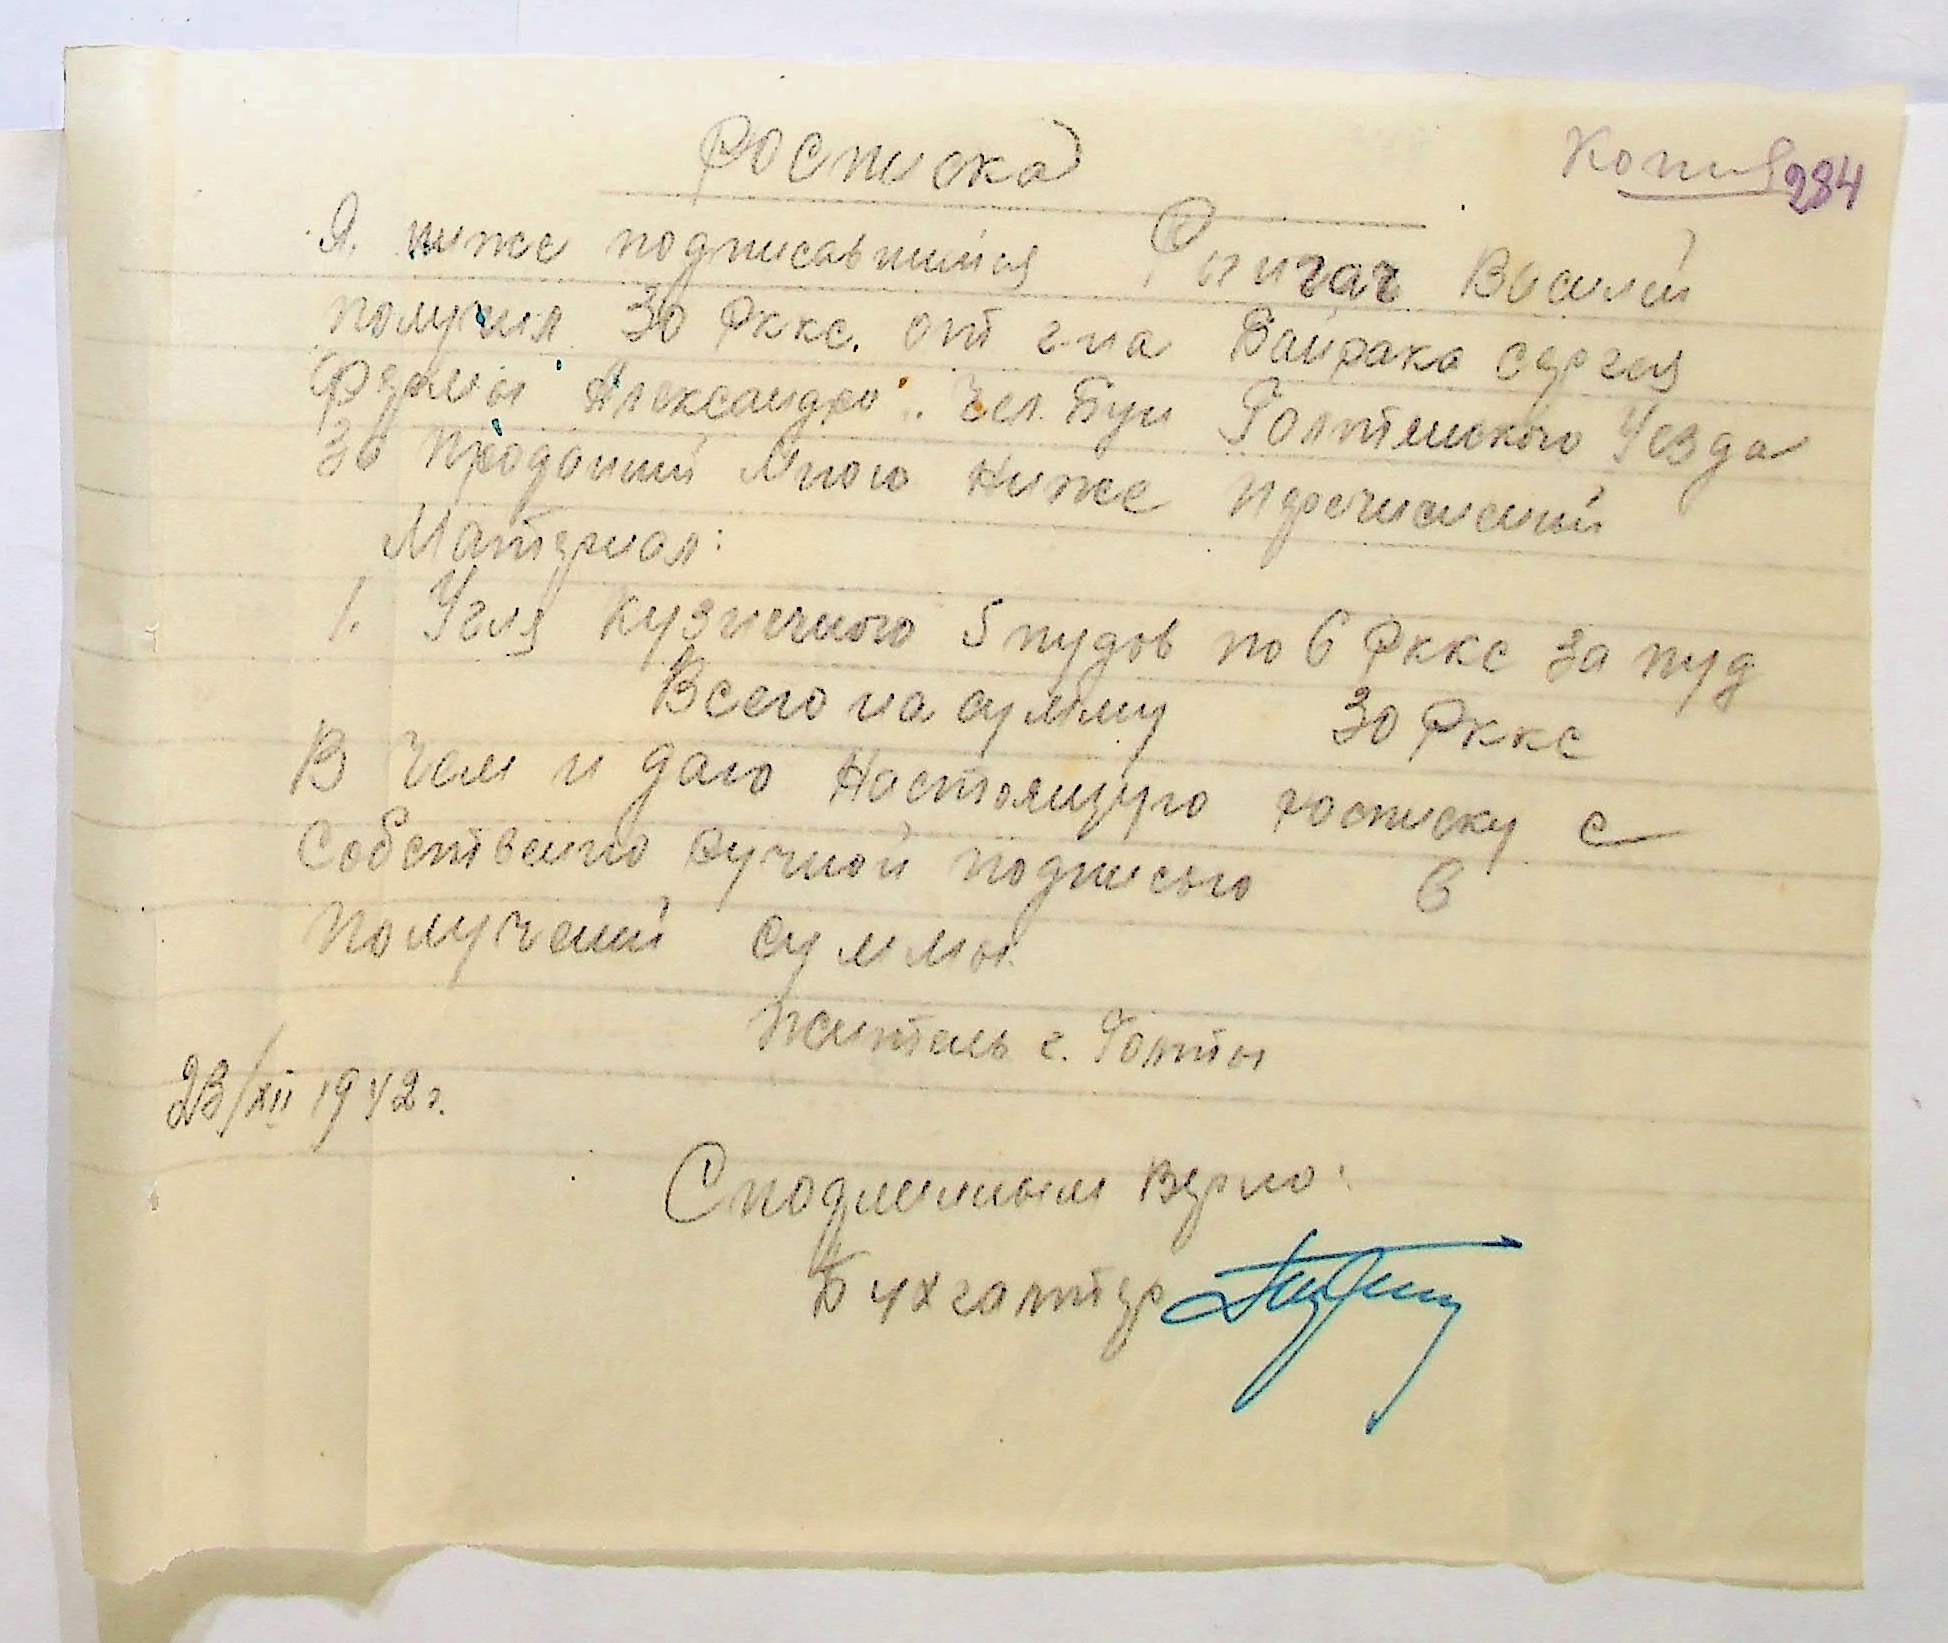 Копия 284
Росписка
Я. ниже подписавшийся Рыигач Василий
получил 30 Рккс. от г-на Байрака Сергея
Фермы "Александро". Чел. Буи Голтянского Уезда
За проданий Мною Ниже перечислений
Материал:
1. Угля кузнечного 5 пудов по 6 Рккс за пуд
Всего на сумму 30 Рккс
В чем и даю Настоящую росписку с
собственно ручной подписью в
получений суммы.
Житель г. Голты
23/XII 1942 г.
С подлинным верно:
Бухгалтер